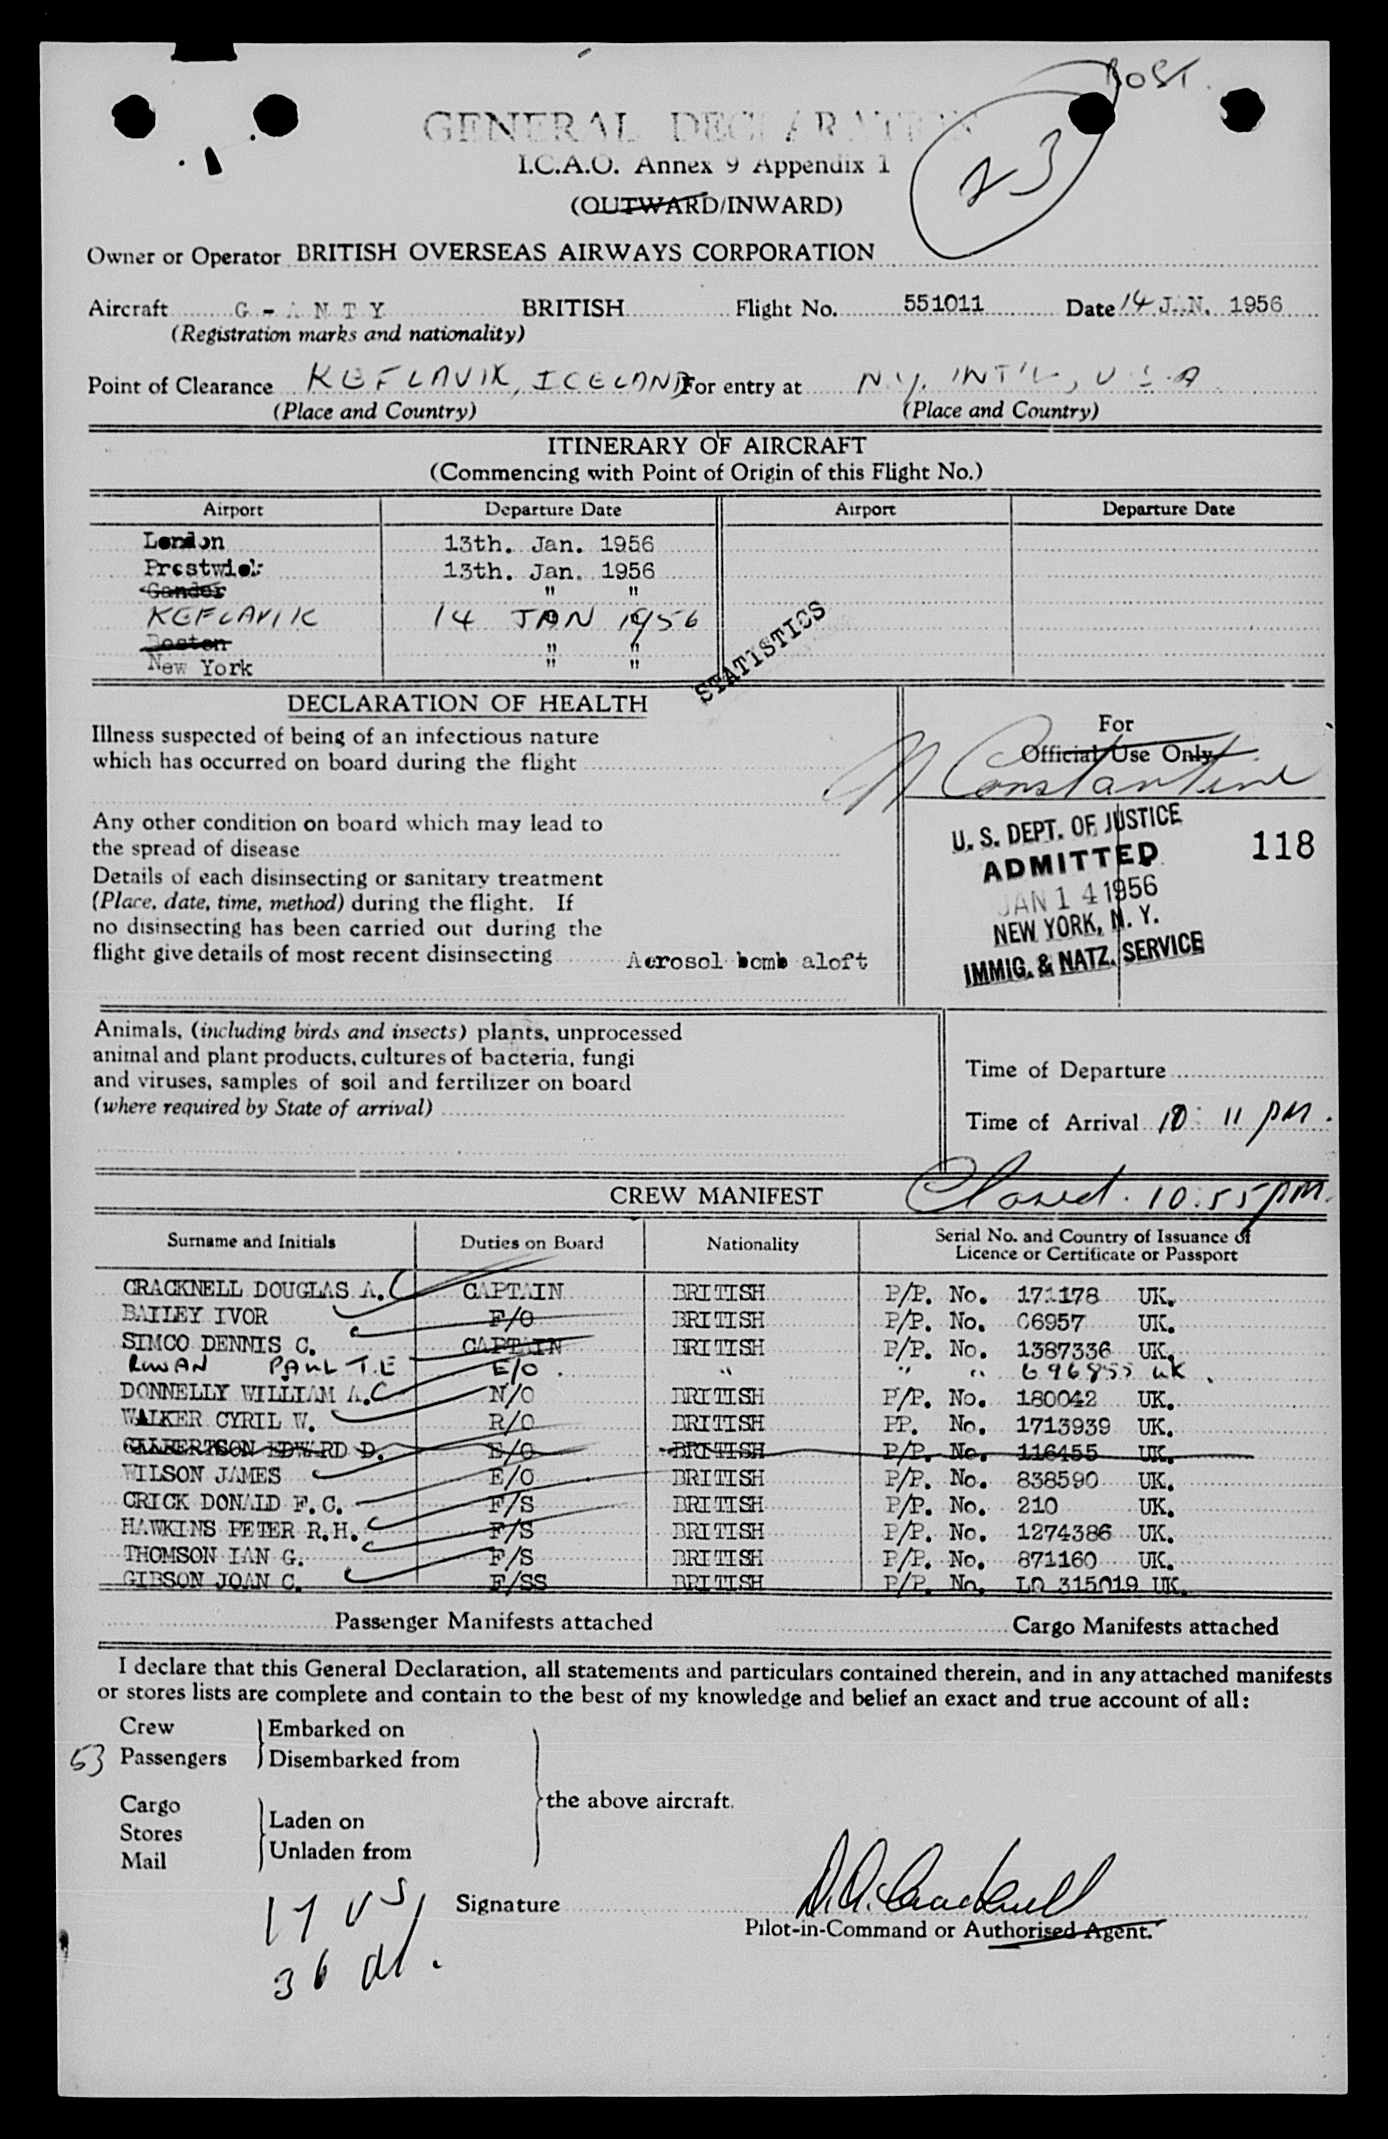 BOST.
GENERAL DECLARATION
23
I.C.A.O. Annex 9 Appendix 1
(OUTWARD/INWARD)
Owner or Operator BRITISH OVERSEAS AIRWAYS CORPORATION
Aircraft G-ANTY BRITISH Flight No. 551011 Date 14 JAN. 1956
(Registration marks and nationality)
Point of Clearance KEFLAVIK, ICELAND For entry at N.Y. INT'L, U.S.A
(Place and Country) (Place and Country)
ITINERARY OF AIRCRAFT
(Commencing with Point of Origin of this Flight No.)
Airport Departure Date Airport Departure Date
London 13th. Jan. 1956
Prestwick 13th. Jan. 1956
Gander " "
KEFLAVIK 14 JAN 1956
Boston " "
New York " "
STATISTICS
DECLARATION OF HEALTH
Illness suspected of being of an infectious nature
which has occurred on board during the flight
For
Official Use Only
Constantine
Any other condition on board which may lead to
the spread of disease
Details of each disinsecting or sanitary treatment
(Place, date, time, method) during the flight. If
no disinsecting has been carried out during the
flight give details of most recent disinsecting Aerosol bomb aloft
U. S. DEPT. OF JUSTICE
ADMITTED 118
JAN 14 1956
NEW YORK, N. Y.
IMMIG. & NATZ. SERVICE
Animals, (including birds and insects) plants, unprocessed
animal and plant products, cultures of bacteria, fungi
and viruses, samples of soil and fertilizer on board
(where required by State of arrival)
Time of Departure
Time of Arrival 10:11 PM.
CREW MANIFEST Closed. 10:55 PM.
Surname and Initials Duties on Board Nationality Serial No. and Country of Issuance of
Licence or Certificate or Passport
CRACKNELL DOUGLAS A. CAPTAIN BRITISH P/P. No. 171178 UK.
BAILEY IVOR F/O BRITISH P/P. No. C6957 UK.
SIMCO DENNIS C. CAPTAIN BRITISH P/P. No. 1387336 UK.
ROWAN PAUL T.E E/O. " " " 696855 UK.
DONNELLY WILLIAM A. N/O BRITISH P/P. No. 180042 UK.
WALKER CYRIL W. R/O BRITISH PP. No. 1713939 UK.
GILBERTSON EDWARD D. E/O BRITISH P/P. No. 116455 UK.
WILSON JAMES E/O BRITISH P/P. No. 838590 UK.
CRICK DONALD F.C. F/S BRITISH P/P. No. 210 UK.
HAWKINS PETER R.H. F/S BRITISH P/P. No. 1274386 UK.
THOMSON IAN G. F/S BRITISH P/P. No. 871160 UK.
GIBSON JOAN C. F/SS BRITISH P/P. No. LO 315019 UK.
Passenger Manifests attached Cargo Manifests attached
I declare that this General Declaration, all statements and particulars contained therein, and in any attached manifests
or stores lists are complete and contain to the best of my knowledge and belief an exact and true account of all:
Crew Embarked on
53 Passengers Disembarked from
the above aircraft.
Cargo Laden on
Stores
Mail Unladen from
17 US
36 al.
Signature D.A. Cracknell
Pilot-in-Command or Authorised Agent.